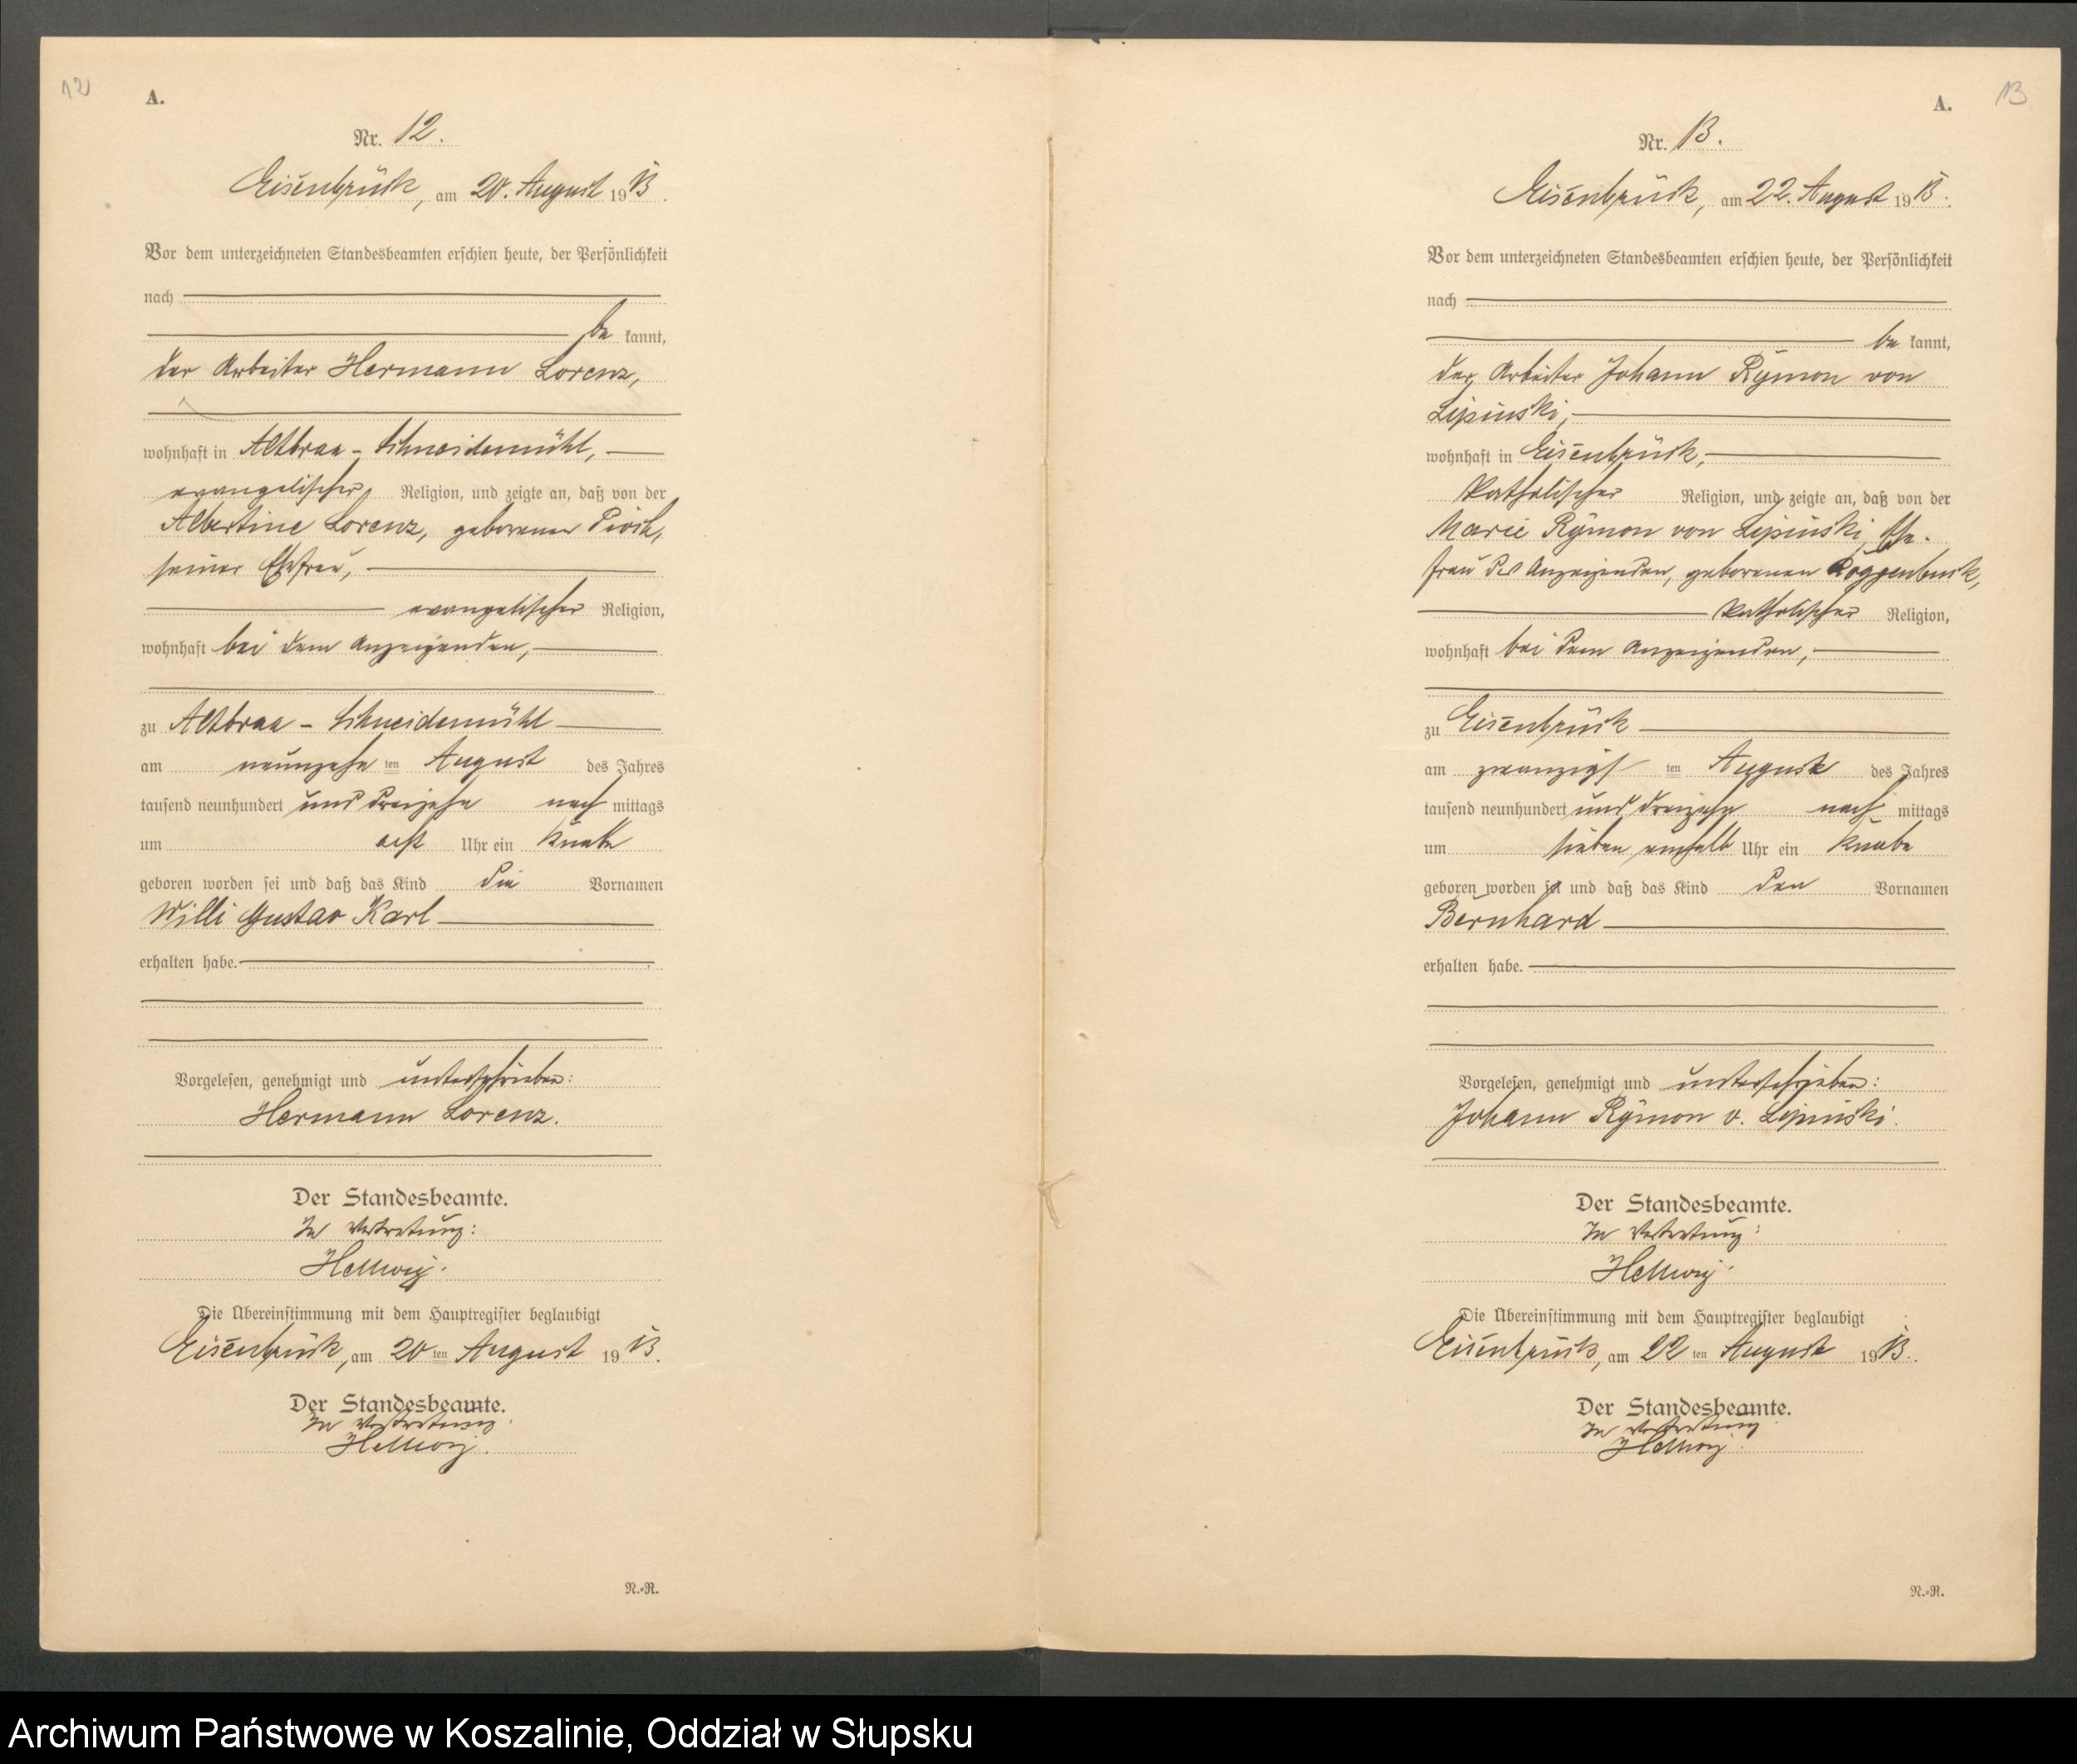 12
A.
Nr. 12.
Eisenbrück, am 20. August 1913.
Vor dem unterzeichneten Standesbeamten erschien heute, der Persönlichkeit
nach
be kannt,
der Arbeiter Hermann Lorenz,
wohnhaft in Altbraa-Schneidemühl,
evangelischer Religion, und zeigte an, daß von der
Albertine Lorenz, geborenen
seiner Ehefrau,
evangelischer Religion,
wohnhaft bei dem Anzeigenden,
zu Altbraa-Schneidemühl
am neunzehn ten August des Jahres
tausend neunhundert und dreizehn nach mittags
um acht Uhr ein Knabe
geboren worden sei und daß das Kind die Vornamen
Willi Gustav Karl
erhalten habe.
Vorgelesen, genehmigt und unterschrieben:
Hermann Lorenz.
Der Standesbeamte.
In Vertretung:
Hellwig.
Die Übereinstimmung mit dem Hauptregister beglaubigt
Eisenbrück, am 20 ten August 1913.
Der Standesbeamte.
In Vertretung
Hellwig.
N.-R.
13
A.
Nr. 13.
Eisenbrück, am 22. August 1913.
Vor dem unterzeichneten Standesbeamten erschien heute, der Persönlichkeit
nach
be kannt,
der Arbeiter Johann Rymon von
Lipinski,
wohnhaft in Eisenbrück,
katholischer Religion, und zeigte an, daß von der
Marie Rymon von Lipinski, Ehe-
frau des Anzeigenden, geborenen Roggenbuck,
katholischer Religion,
wohnhaft bei dem Anzeigenden,
zu Eisenbrück
am zwanzigs ten August des Jahres
tausend neunhundert und dreizehn nach mittags
um sieben einhalb Uhr ein Knabe
geboren worden sei und daß das Kind den Vornamen
Bernhard
erhalten habe.
Vorgelesen, genehmigt und unterschrieben:
Johann Rymon v. Lipinski.
Der Standesbeamte.
In Vertretung:
Hellwig.
Die Übereinstimmung mit dem Hauptregister beglaubigt
Eisenbrück, am 22 ten August 1913.
Der Standesbeamte.
In Vertretung
Hellwig.
N.-R.
Archiwum Państwowe w Koszalinie, Oddział w Słupsku